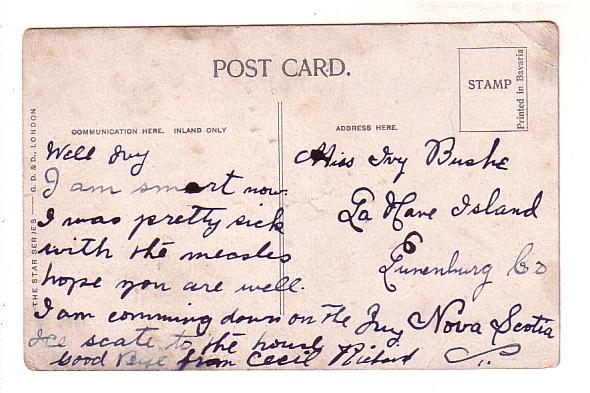 POST CARD.
STAMP
Printed in Bavaria
THE STAR SERIES — G. D. & D., LONDON
COMMUNICATION HERE. INLAND ONLY
ADDRESS HERE.
Well Ivy
I am smart now.
I was pretty sick
with the measles
hope you are well.
I am comming down on the
Ice scate to the house
Good Bye from Cecil Richard
Miss Ivy Bushe
La Have Island
Lunenburg Co
Nova Scotia